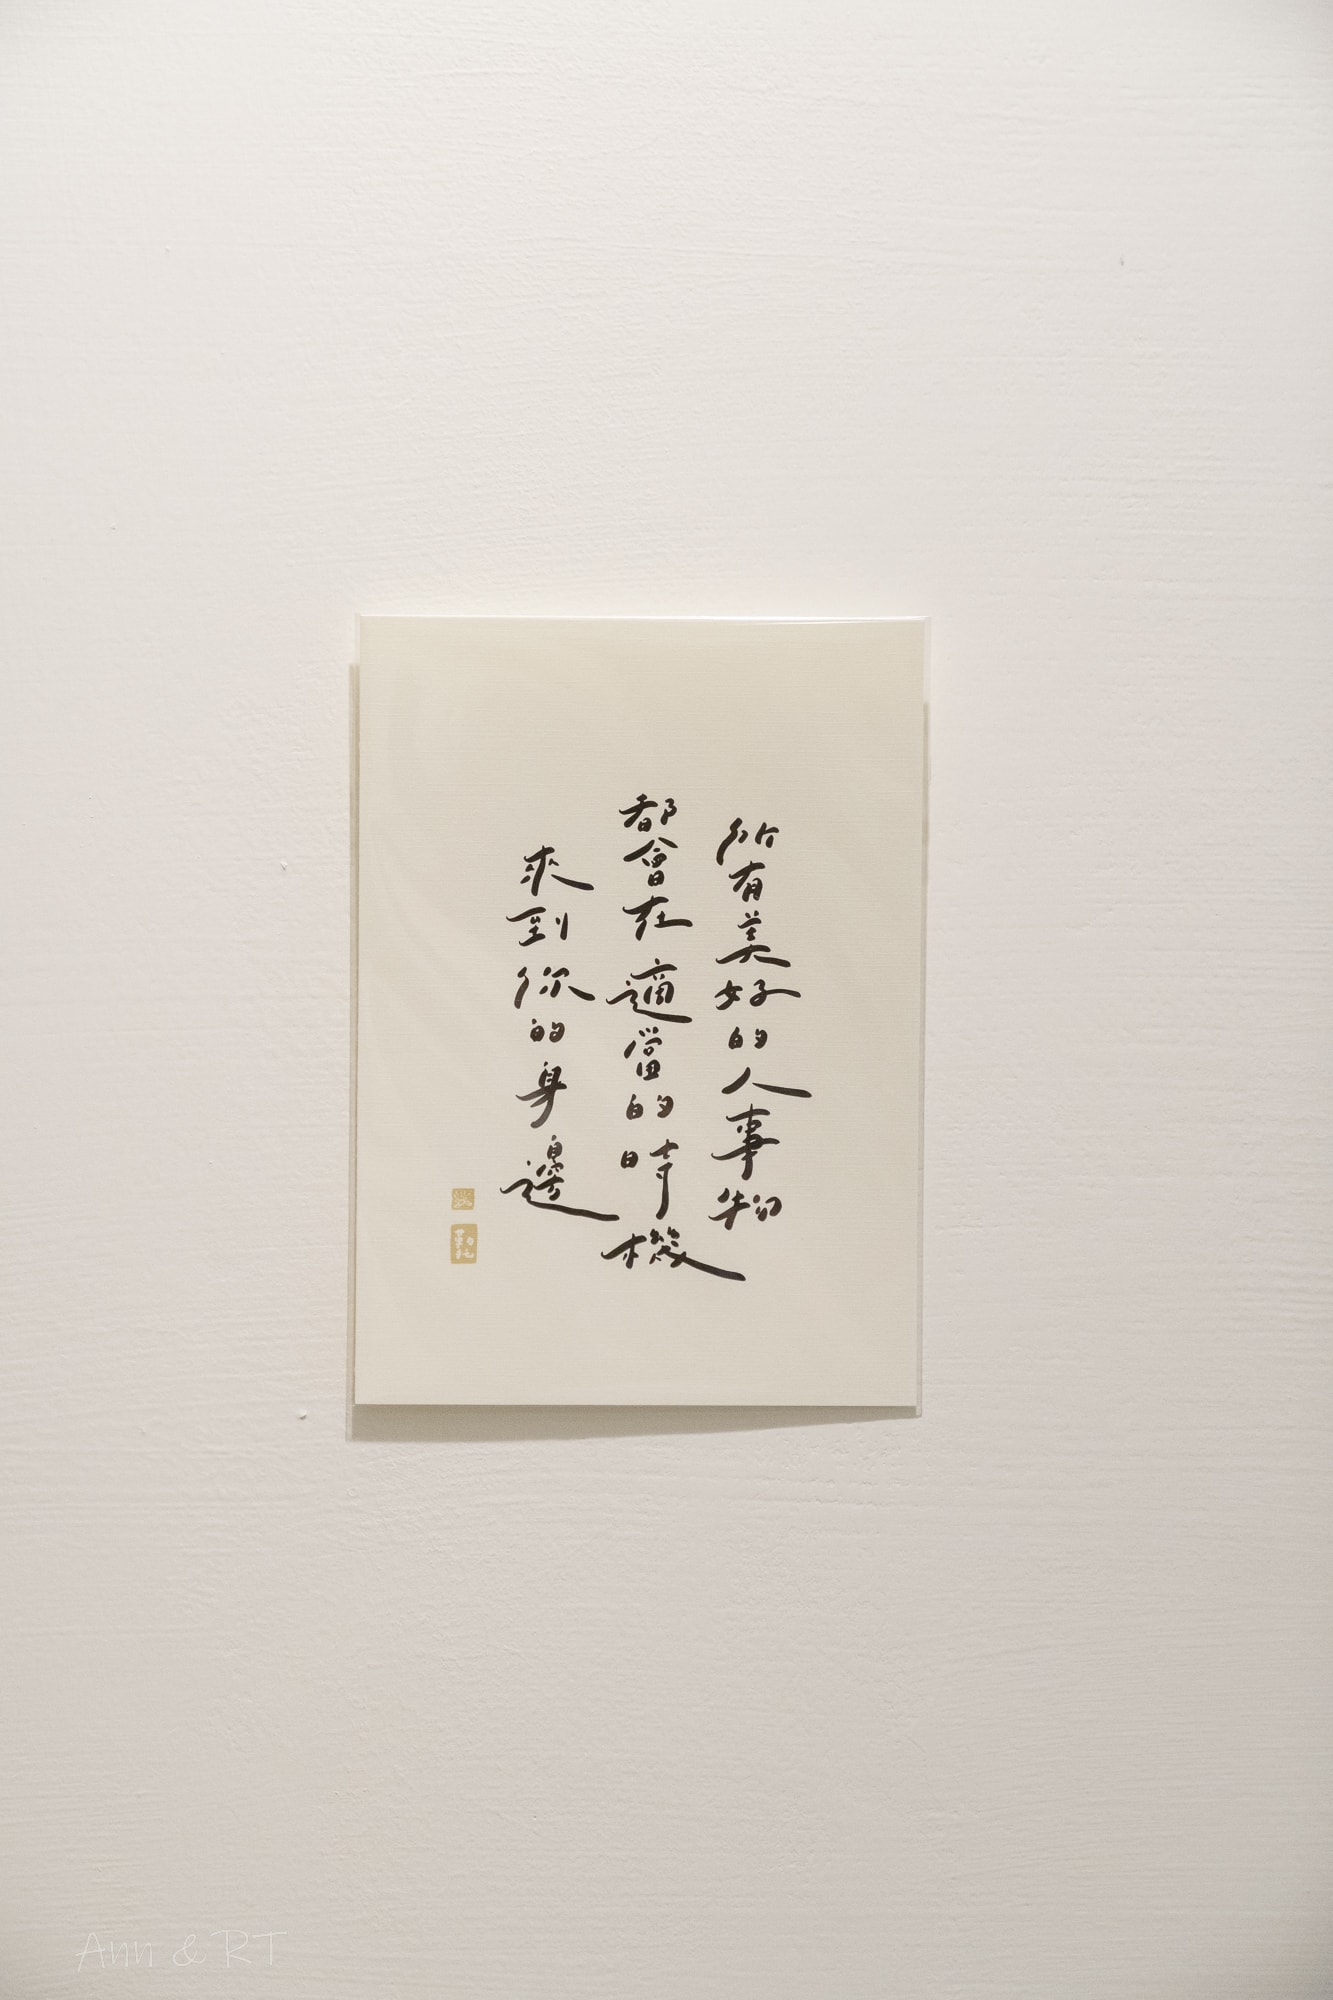 所有美好的人事物
都會在適當的時機
來到你的身邊
Ann & RT